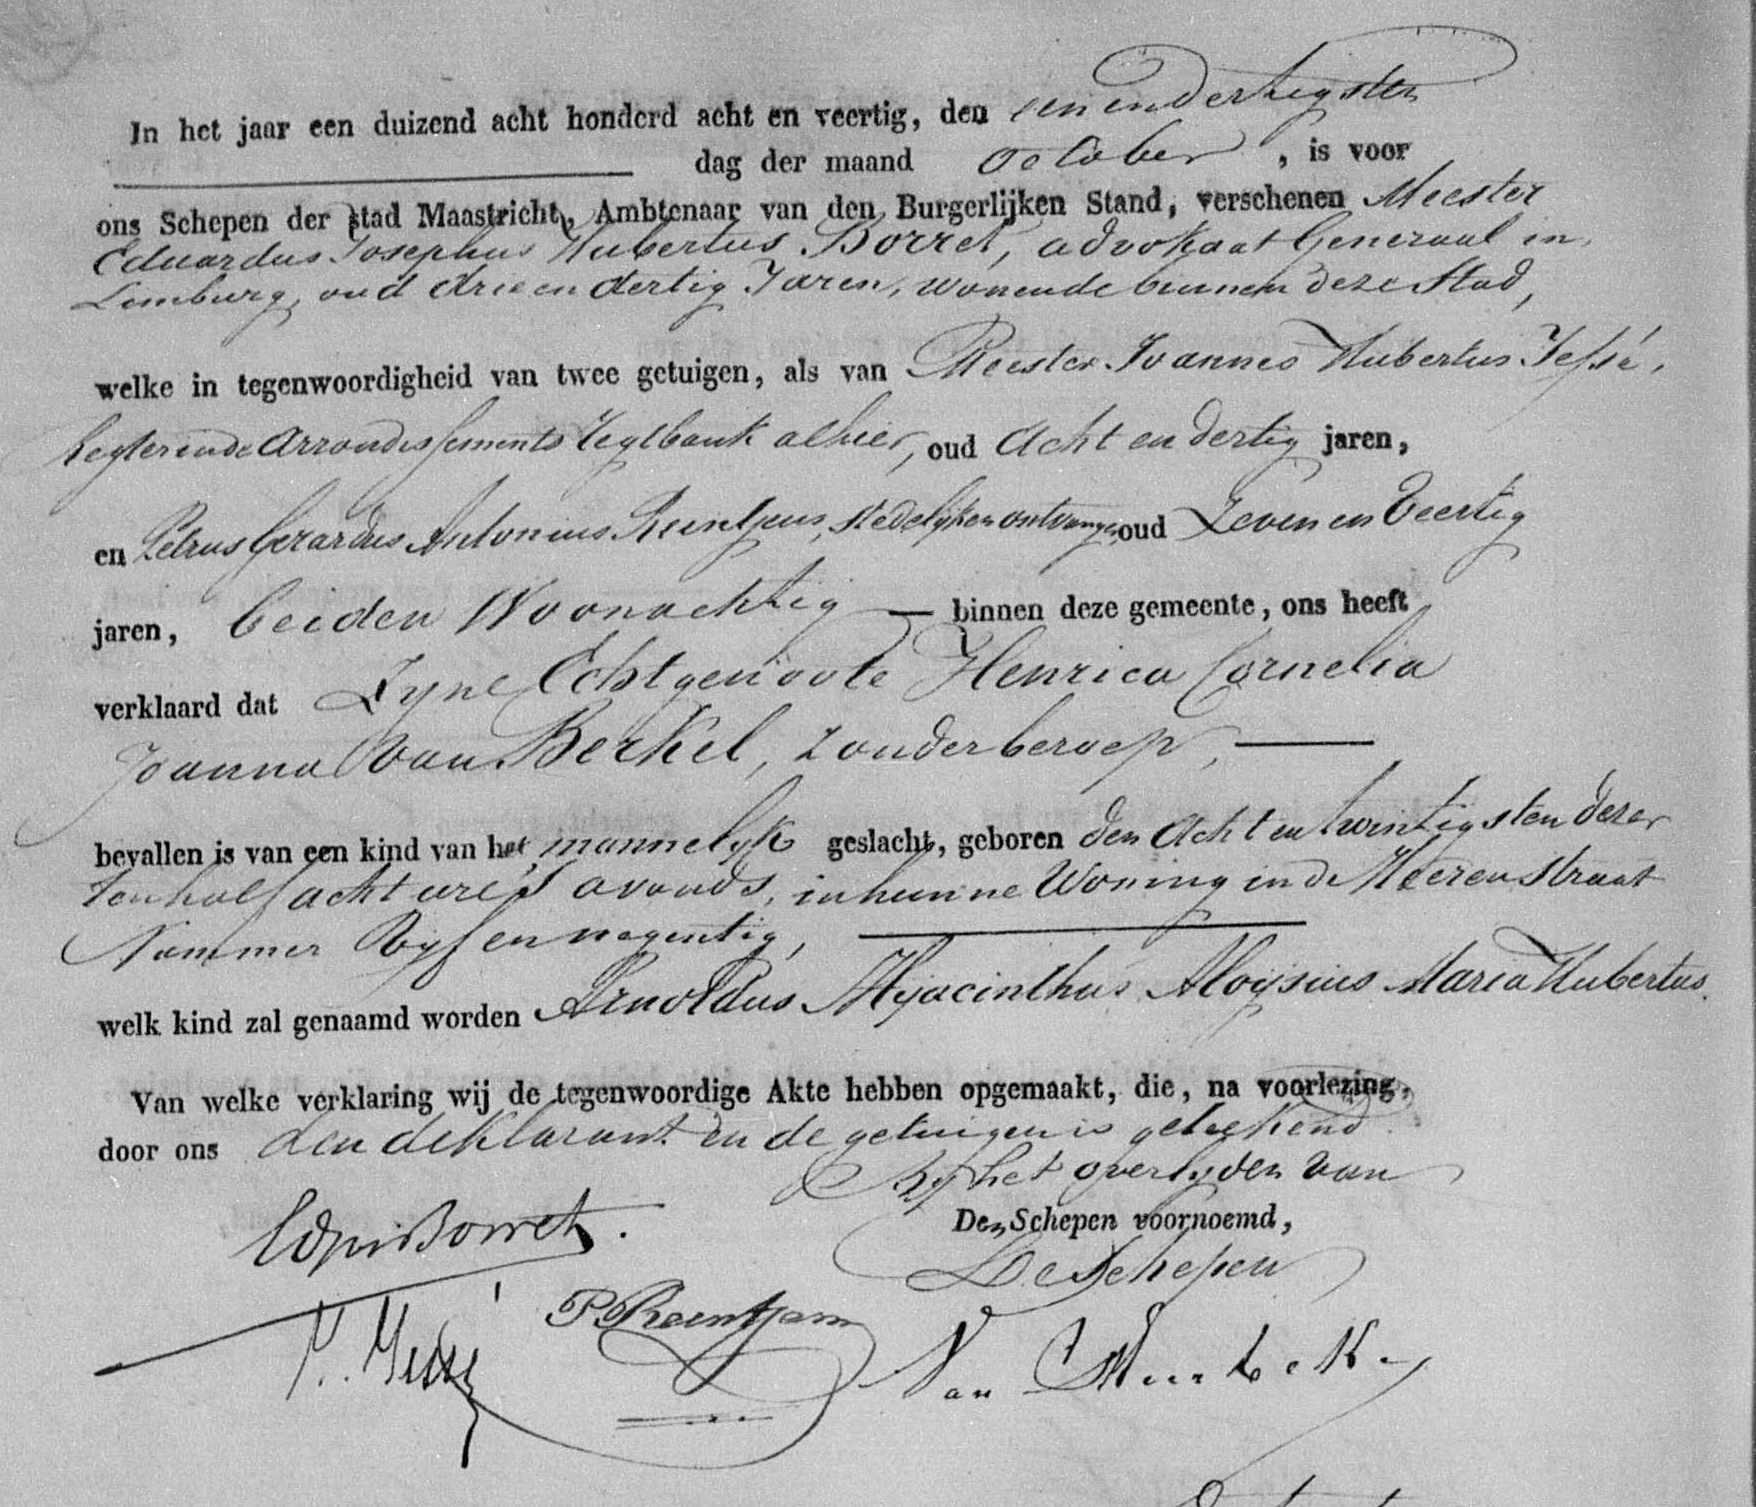 In het jaar een duizend acht honderd acht en veertig, den een en dertigsten
dag der maand October, is voor
ons Schepen der stad Maastricht, Ambtenaar van den Burgerlijken Stand, verschenen Meester
Eduardus Josephus Hubertus Borret, advokaat Generaal in
Limburg, oud drie en dertig Jaren, wonende binnen deze Stad,
welke in tegenwoordigheid van twee getuigen, als van Meester Joannes Hubertus Jessé,
Regter in de Arrondissements Regtbank alhier, oud Acht en dertig jaren,
en Petrus Gerardus Antonius Reintjens, stedelyken ontvanger oud Zeven en Veertig
jaren, beiden Woonachtig binnen deze gemeente, ons heeft
verklaard dat Zyne Echtgenoote Henrica Cornelia
Joanna van Berkel, zonder beroep,
bevallen is van een kind van het mannelyk geslacht, geboren den Acht en twintigsten dezer
ten half acht ure 's avonds, in hunne Woning in de Heerenstraat
Nummer Vyf en negentig,
welk kind zal genaamd worden Arnoldus Hyacinthus Aloysius Maria Hubertus.
Van welke verklaring wij de tegenwoordige Akte hebben opgemaakt, die, na voorlezing,
door ons den deklarant en de getuigen is geteekend
By het overlyden van
Den Schepen voornoemd,
De Schepen
Borret.
P. Reintjens
Jessé
Van